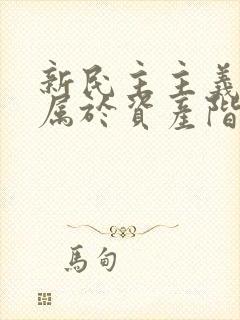 新民主主義
属於資產階
馬甸